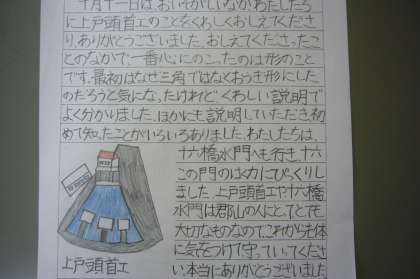 十月十一日は、おいそがしいなか、わたしたち
に上戸頭首工のことをくわしくおしえてくださ
り、ありがとうございました。おしえてくださったこ
とのなかで、一番心にのこったのは形のこと
です。最初はなぜ三角ではなくおうぎ形にした
のだろうと気になったけれど、くわしい説明で
よく分かりました。ほかにも説明していただき、初
めて知ったことがいろいろありました。わたしたちは、
十六橋水門へも行き、十六
この門のはく力にびっくりし
ました。上戸頭首工や十六橋
水門は郡山の人にとってとても
大切なものなので、これからも体
に気をつけて守っていてくださ
い。本当にありがとうございました
上戸頭首工